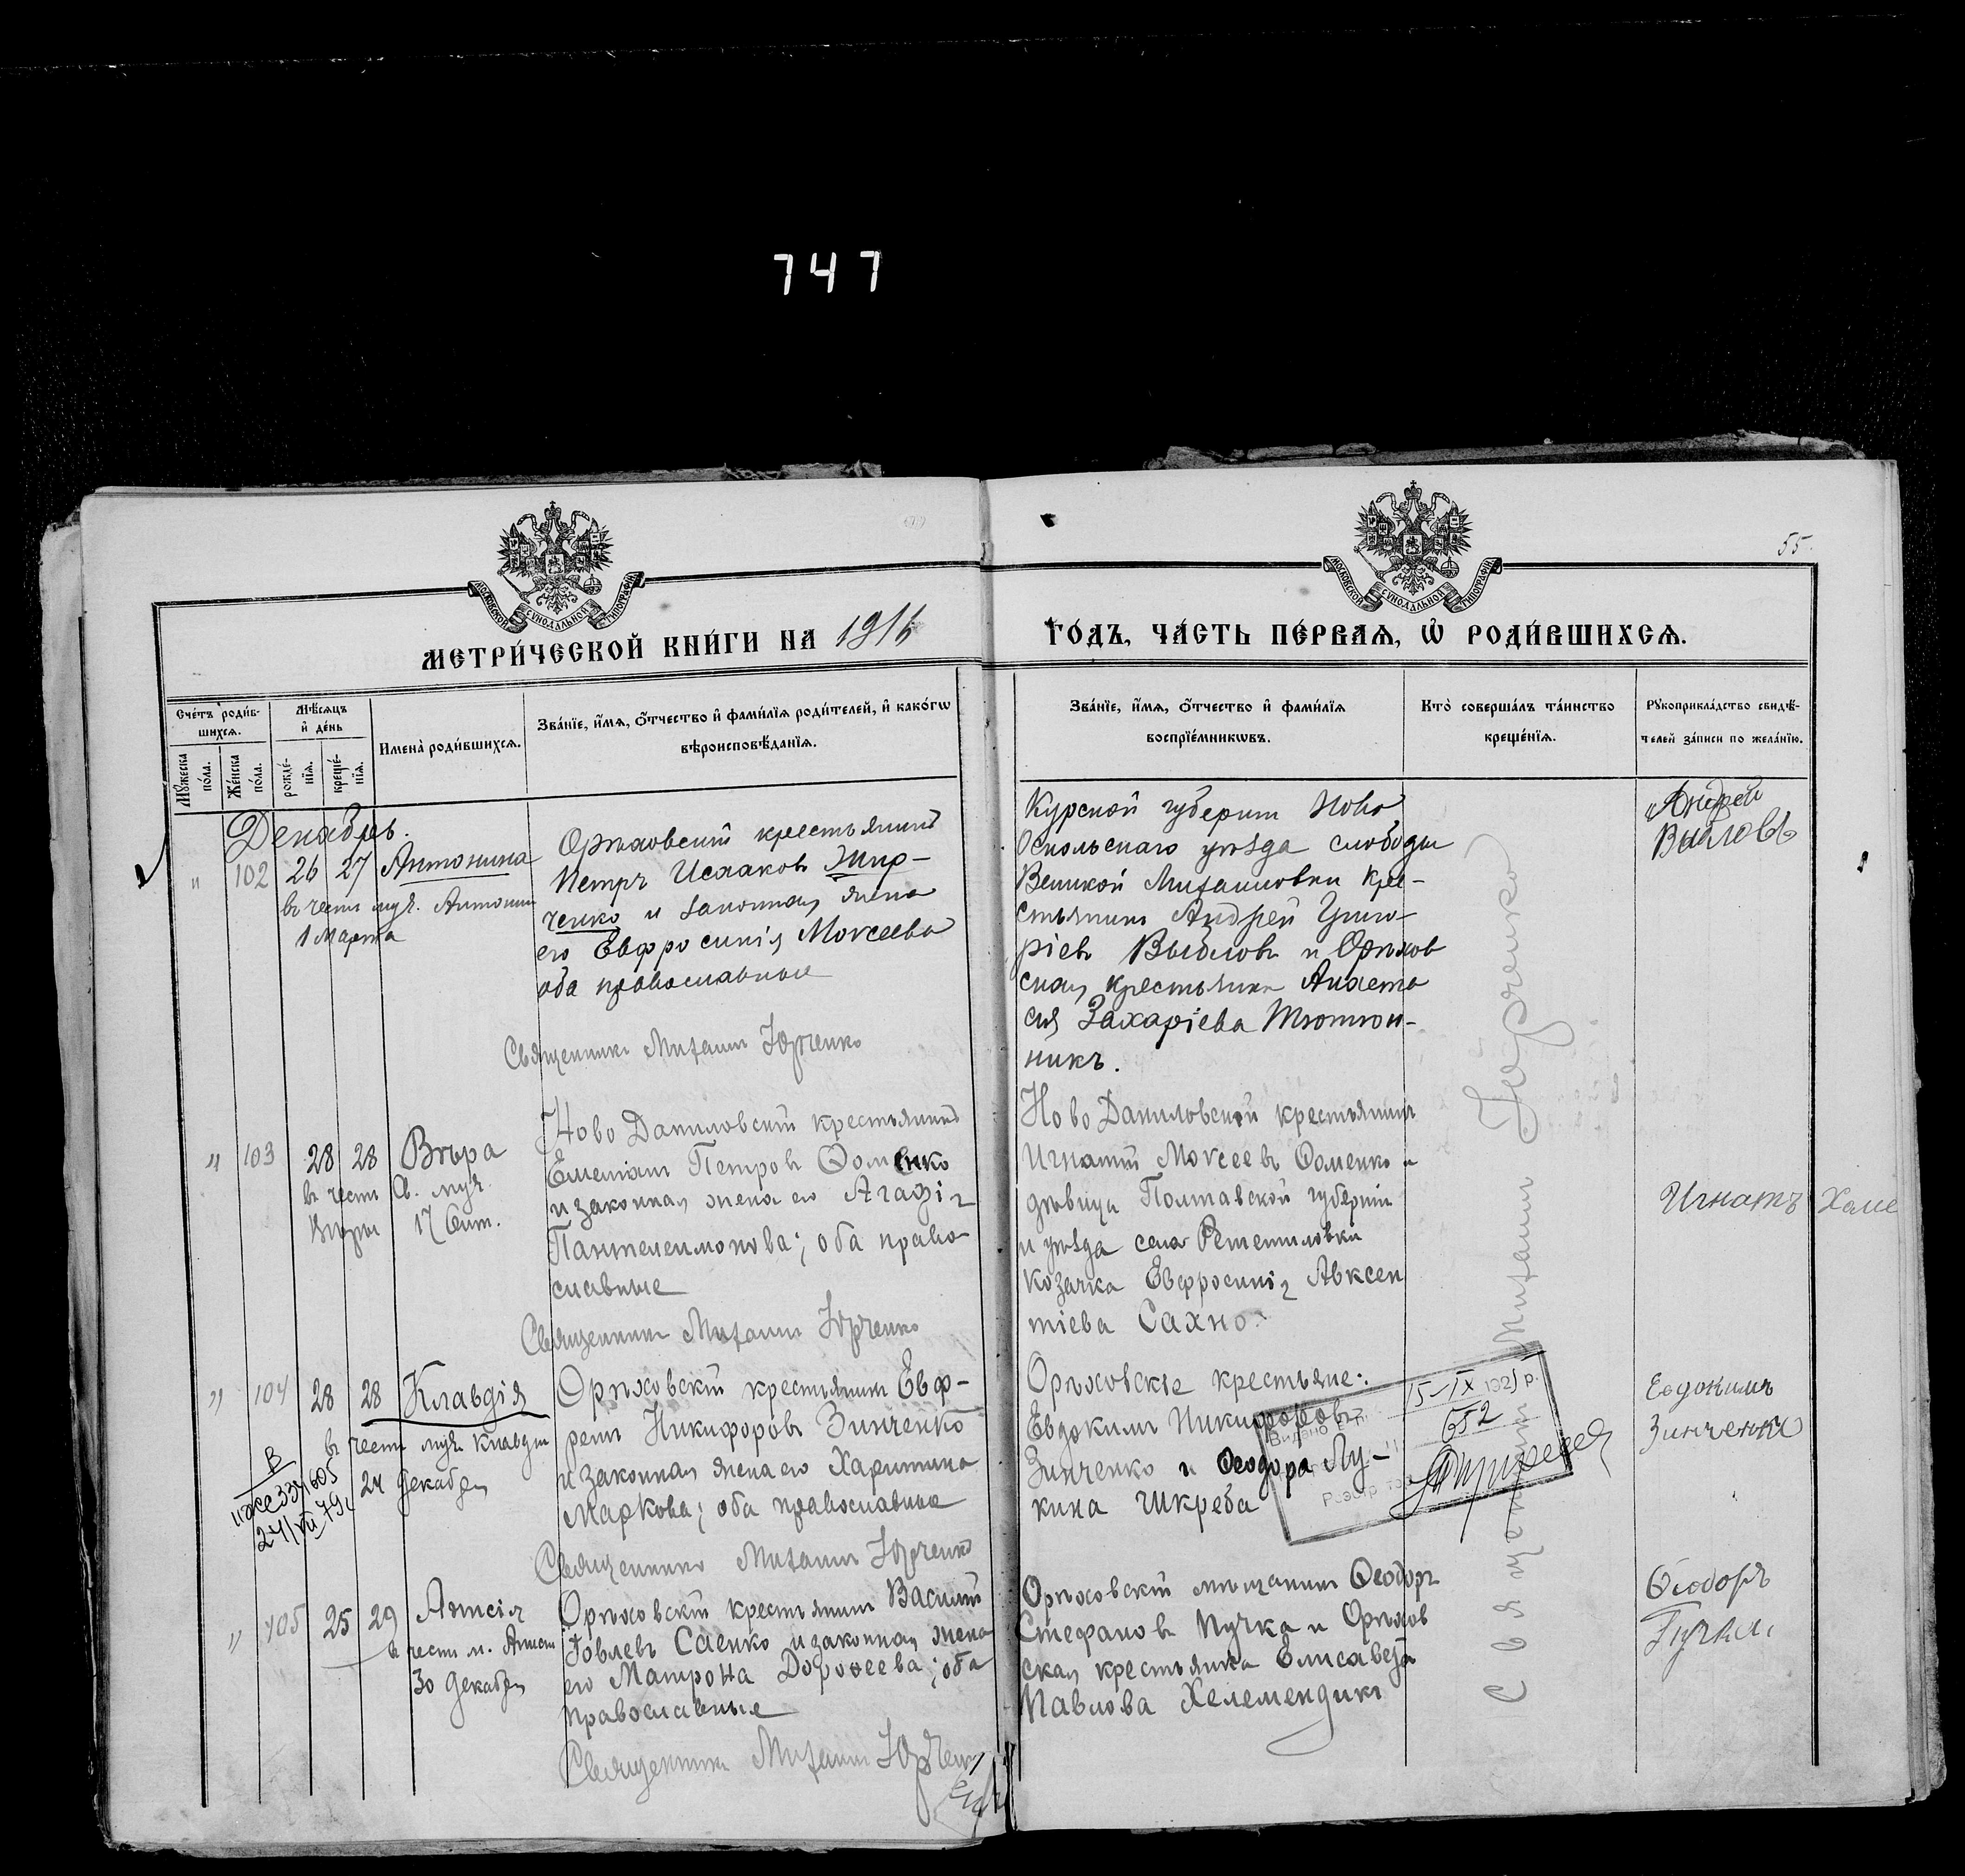 747
55.
МОСКОВСКОЙ СѴНОДАЛЬНОЙ ТИПОГРАФІИ
МОСКОВСКОЙ СѴНОДАЛЬНОЙ ТИПОГРАФІИ
МЕТРИ́ЧЕСКОЙ КНИ́ГИ НА 1916
ГО́ДЪ, ЧА́СТЬ ПЕ́РВАѦ, Ѡ҆ РОДИ́ВШИХСѦ.
Сче́тъ роди́в-
шихсѧ.
Мꙋ́жеска по́ла.
Же́нска по́ла.
Мѣ́сѧцъ
и҆ де́нь
рожде́-
нїѧ.
креще́-
нїѧ.
Имена̀ роди́вшихсѧ.
Зва́нїе, и҆́мѧ, ѻ҆́тчество и҆ фами́лїѧ роди́телей, и҆ како́гѡ
вѣроисповѣ́данїѧ.
Зва́нїе, и҆́мѧ, ѻ҆́тчество и҆ фами́лїѧ
воспрїе́мникѡвъ.
Кто̀ соверша́лъ та́инство
креще́нїѧ.
Рꙋкоприкла́дство свидѣ́-
телей за́писи по жела́нїю.
Декабрь.
" 102 26 27 Антонина
въ честь муч. Антонин
1 Марта
Орѣховскій крестьянинъ
Петръ Исааковъ Жир-
ченко и законная жена
его Евфросинія Моѵсеева
оба православные
Священникъ Михаилъ Юрченко
Курской губерніи Ново
Оскольскаго уѣзда слободы
Великой Михайловки кре-
стьянинъ Андрей Григо-
ріевъ и Орѣхов
ская крестьянка Анаста
сія Захаріева Тютюн-
никъ.
Андрей
" 103 28 28 Вѣра
въ честь Св. муч.
Вѣры 17 Сент.
Ново Даниловскій крестьянинъ
Емеліанъ Петровъ Ѳоменко
и законная жена его Агафія
Пантелеимонова; оба право
славные
Священникъ Михаилъ Юрченко
Ново Даниловской крестьянинъ
Игнатій Моѵсеевъ Ѳоменко и
дѣвица Полтавской губерніи
и уѣзда села Решетиловки
козачка Евфросинія Авксен
тіева Сахно.
Игнатъ Хоме
" 104 28 28 Клавдія
въ честь муч. Клавдіи
24 Декабря
В
334605
24/VII 79
Орѣховскій крестьянинъ Евф-
ремъ Никифоровъ Зинченко
и законная жена его Харитина
Маркова; оба православные
Священникъ Михаилъ Юрченко
Орѣховскіе крестьяне:
Евдокимъ Никифоровъ
Зинченко и Ѳеодора Лу-
кина Шкреба
15-IX 192 р.
652
Видано
Евдокимъ
Зинченко
" 105 25 29 Анисія
въ честь м. Анисіи
30 Декабря
Орѣховскій крестьянинъ Василій
Іовлевъ Саенко и законная жена
его Матрона Дороѳеева; оба
православные
Священникъ Михаилъ Юрченко
Орѣховскій мѣщанинъ Ѳеодоръ
Стефановъ Пучка и Орѣхов
ская крестьянка Елисавета
Павлова Хелемендикъ
Ѳеодоръ
Священникъ Михаилъ Юрченко